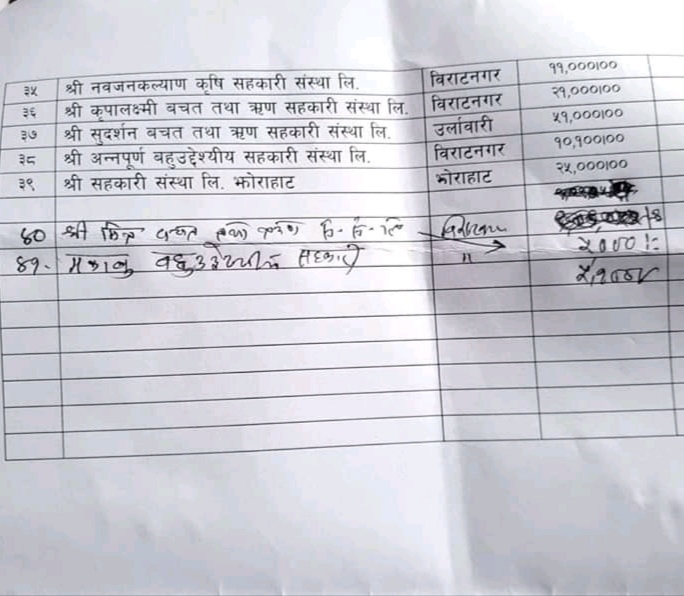 ३५ श्री नवजनकल्याण कृषि सहकारी संस्था लि. विराटनगर ११,०००|००
३६ श्री कृपालक्ष्मी बचत तथा ऋण सहकारी संस्था लि. विराटनगर २१,०००|००
३७ श्री सुदर्शन बचत तथा ऋण सहकारी संस्था लि. उर्लावारी ५१,०००|००
३८ श्री अन्नपूर्ण बहुउद्देश्यीय सहकारी संस्था लि. विराटनगर १०,१००|००
३९ श्री सहकारी संस्था लि. झोराहाट झोराहाट २५,०००|००
४० श्री मित्र बचत तथा ऋण
४१. बहुउद्देश्यीय सहकारी "